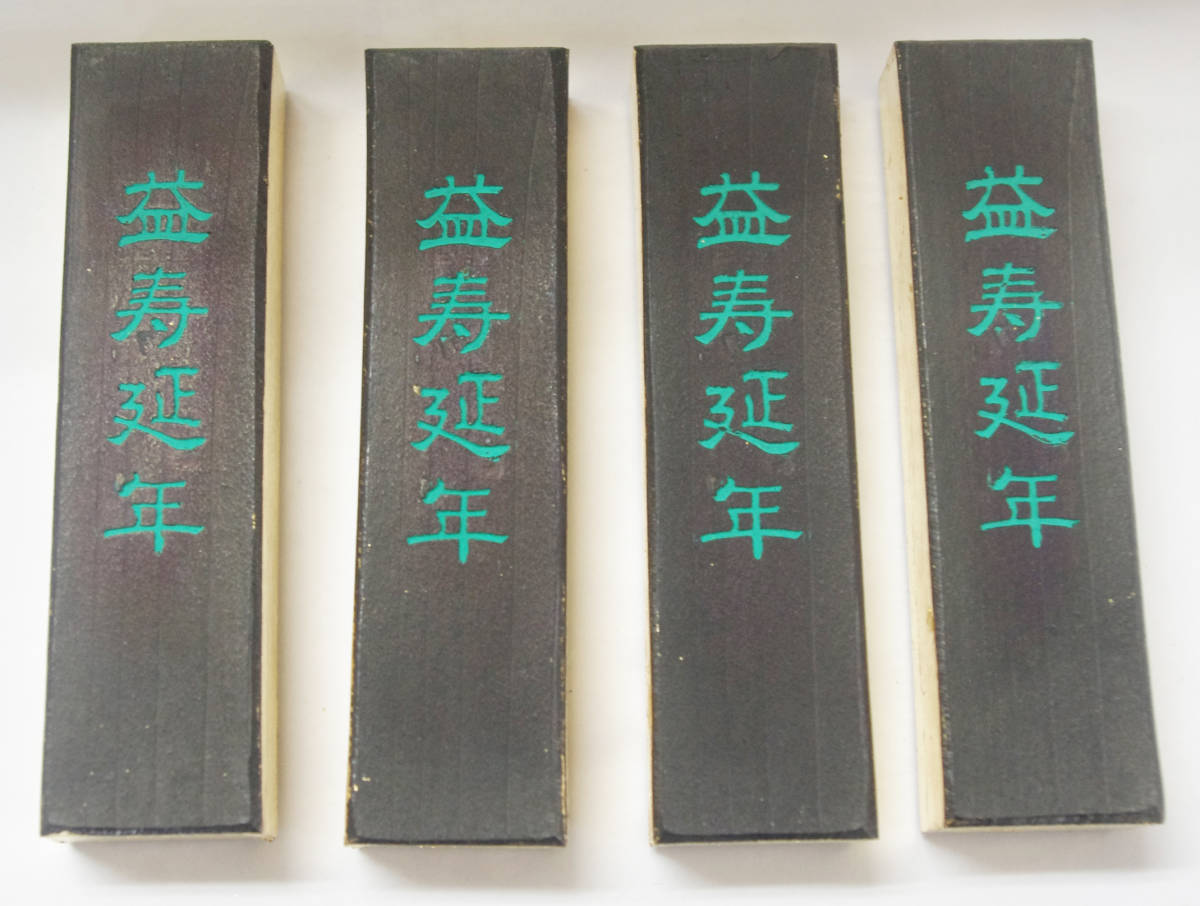 益寿延年
益寿延年
益寿延年
益寿延年